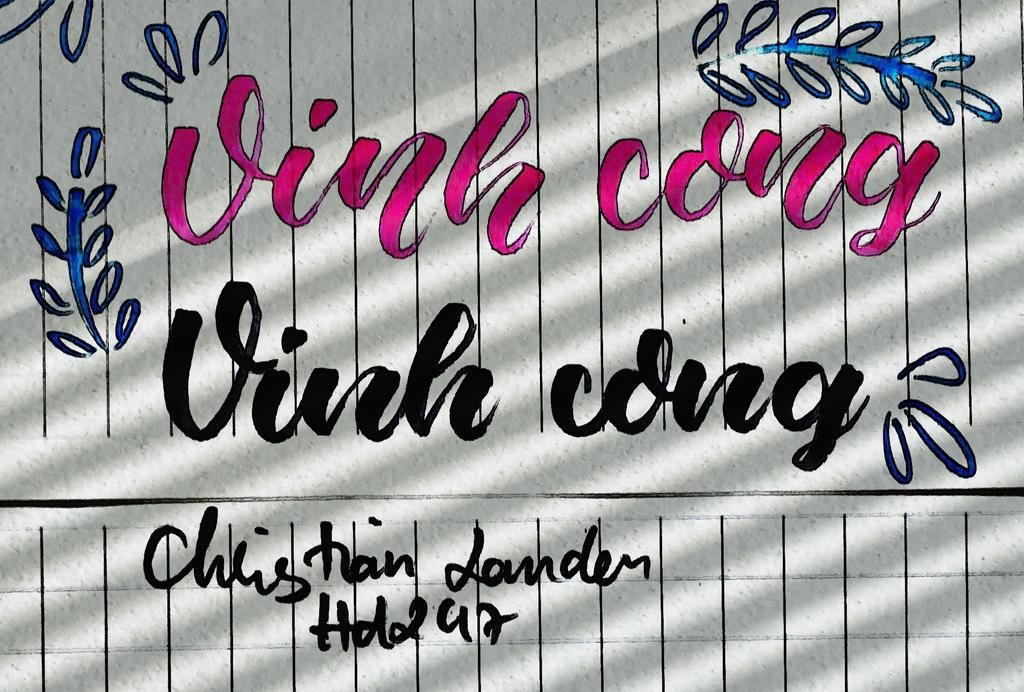 Vinh cong
Vinh cong
Christian Landen
Hda247